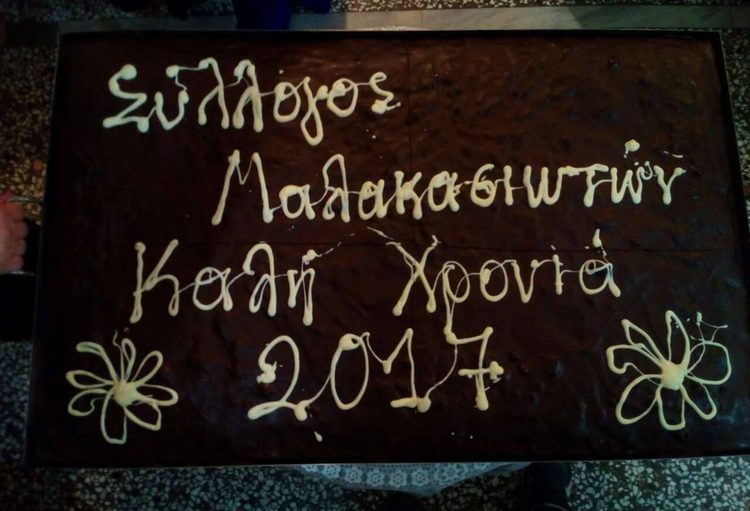 Σύλλογος
Μαλακασιωτών
Καλή Χρονιά
2017